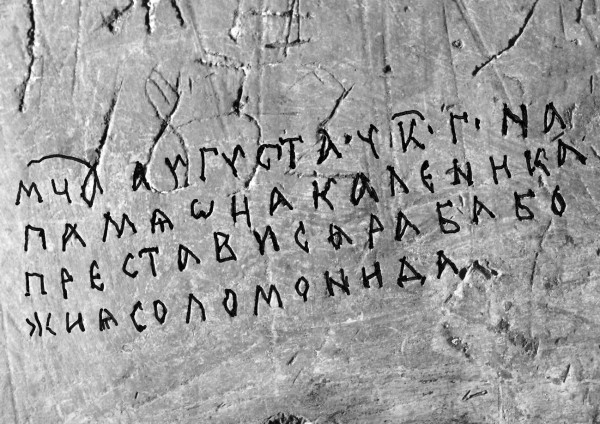 мч҃а августа · ѵ к҃ · г · на
памѧ ѡна каленика
престависѧ раба бо
жиѧ соломонида